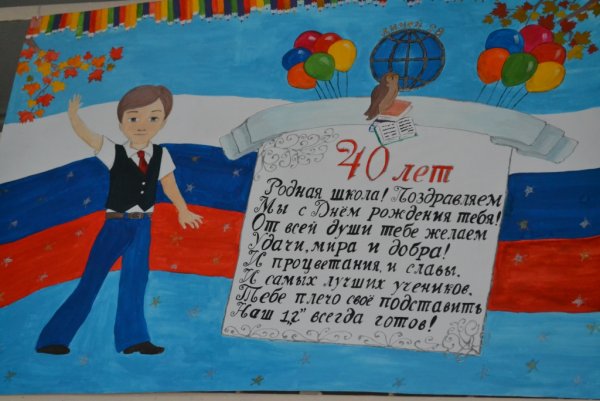 лицей
40 лет
Родная школа! Поздравляем
Мы с Днём рождения тебя!
От всей души тебе желаем
Удачи, мира и добра!
И процветания, и славы.
И самых лучших учеников.
Тебе плечо своё подставить
Наш 1„2" всегда готов!